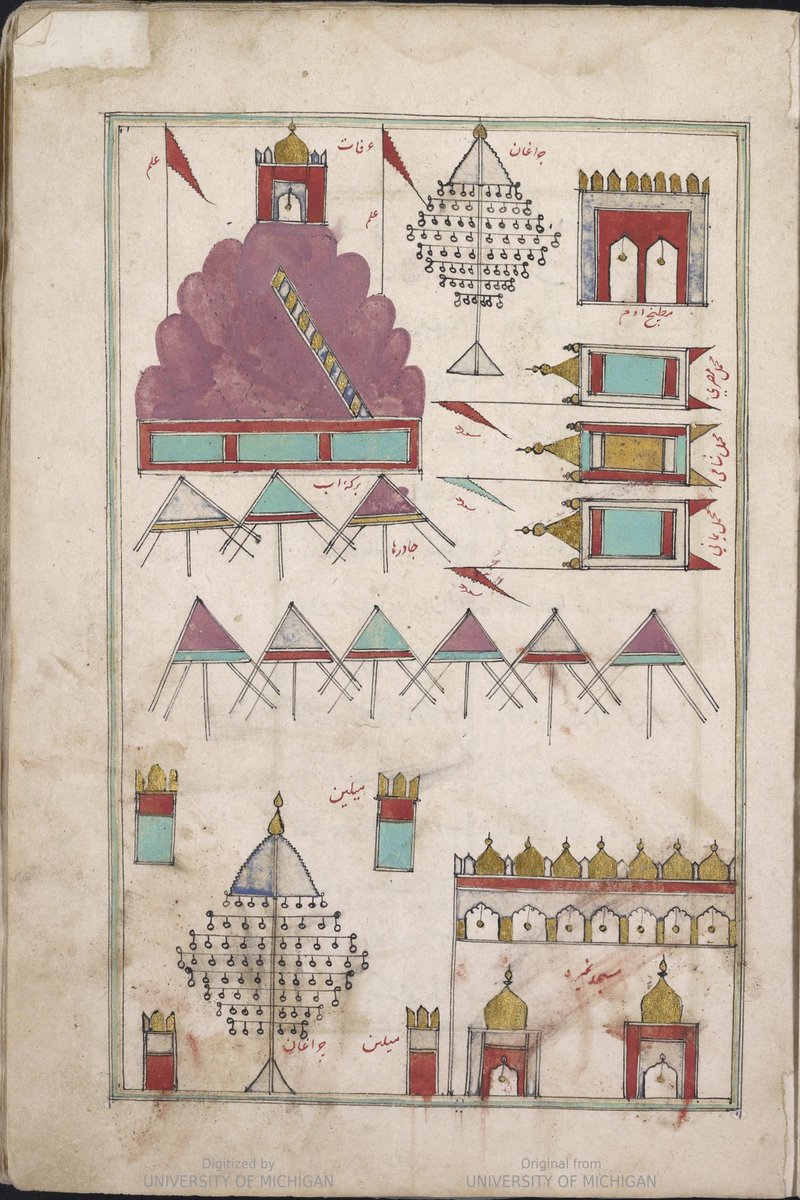 علم
عرفات
علم
چراغان
مطبخ آدم
محمل مصری
محمل شامی
برکهٔ آب
چادرها
میلین
مسجد نمیره
چراغان
میلین
Digitized by
UNIVERSITY OF MICHIGAN
Original from
UNIVERSITY OF MICHIGAN